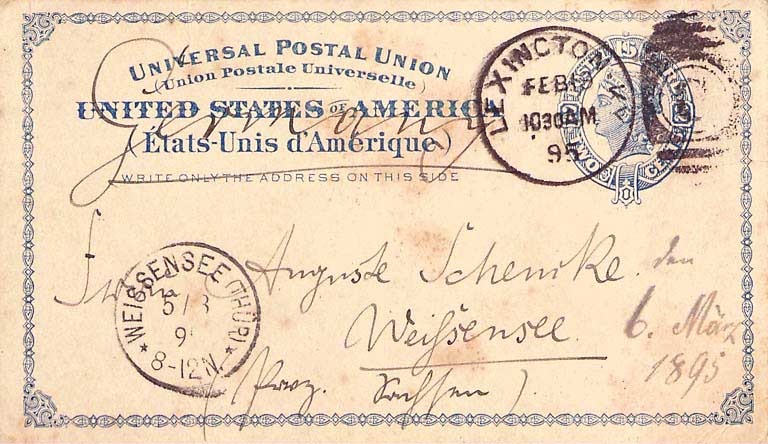 UNIVERSAL POSTAL UNION
(Union Postale Universelle)
UNITED STATES OF AMERICA
(États-Unis d'Amérique)
WRITE ONLY THE ADDRESS ON THIS SIDE
Germany
LEXINGTON, VA.
FEB
1030AM
95
TWO CENTS
Auguste Schencke.
Weißensee.
(Prov. Sachsen).
den
6. März
1895
* WEISSENSEE (THÜR) *
5/3
9
8-12N.